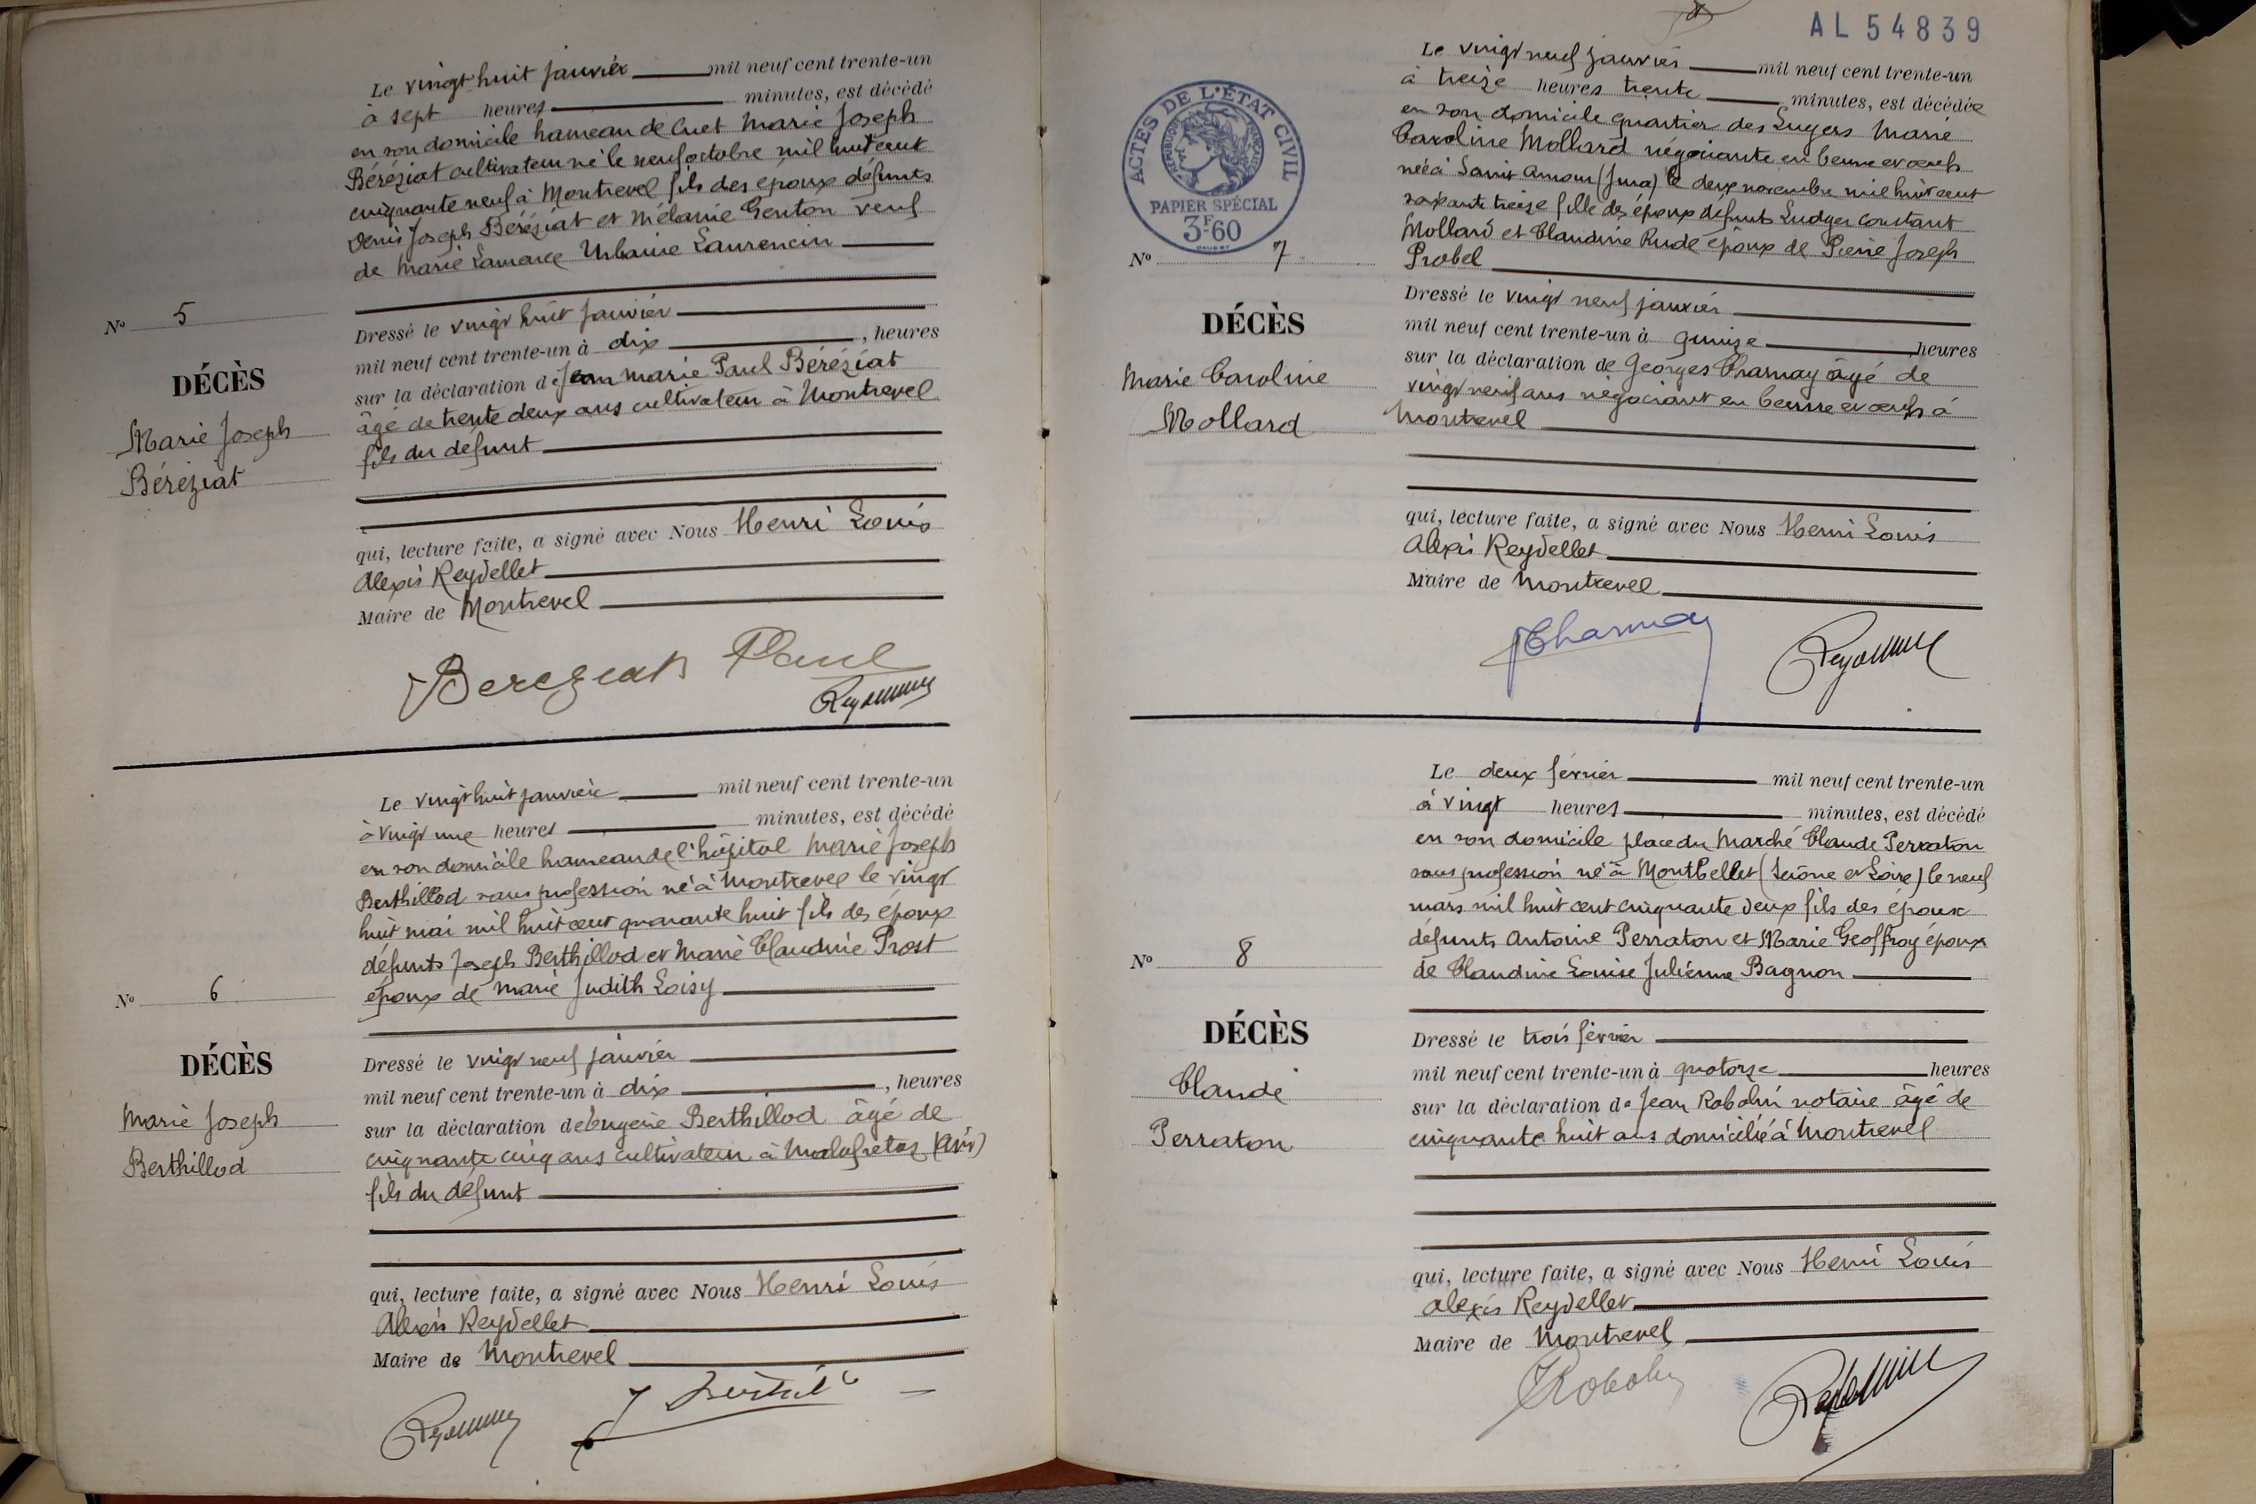 Le vingt huit janvier mil neuf cent trente-un
à sept heures minutes, est décédé
en son domicile hameau de Cuet Marie Joseph
Béréziat cultivateur né le neuf octobre mil huit cent
cinquante neuf à Montrevel fils des époux défunts
Denis Joseph Béréziat et Mélanie Genton veuf
de Marie Urbanie Laurencin
Nº 5
DÉCÈS
Marie Joseph
Béréziat
Dressé le vingt huit janvier
mil neuf cent trente-un à dix , heures
sur la déclaration de Jean Marie Paul Béréziat
âgé de trente deux ans cultivateur à Montrevel
fils du défunt
qui, lecture faite, a signé avec Nous Henri Louis
Alexis Reydellet
Maire de Montrevel
Bereziat Paul
Le vingt huit janvier mil neuf cent trente-un
à vingt une heures minutes, est décédé
en son domicile hameau de l'hôpital Marie Joseph
Berthillod sans profession né à Montrevel le vingt
huit mai mil huit cent quarante huit fils des époux
défunts Joseph Berthillod et Marie Claudine Prost
époux de Marie Judith Loisy
Nº 6
DÉCÈS
Marie Joseph
Berthillod
Dressé le vingt neuf janvier
mil neuf cent trente-un à dix , heures
sur la déclaration de Eugène Berthillod âgé de
cinquante cinq ans cultivateur à Malafretaz (Ain)
fils du défunt
qui, lecture faite, a signé avec Nous Henri Louis
Alexis Reydellet
Maire de Montrevel
AL 54839
ACTES DE L'ÉTAT CIVIL
RÉPUBLIQUE FRANÇAISE
PAPIER SPÉCIAL
3F.60
Le vingt neuf janvier mil neuf cent trente-un
à treize heures trente minutes, est décédée
en son domicile quartier des Luyers Marie
Caroline Mollard négociante en beurre et œufs
née à Saint Amour (Jura) le deux novembre mil huit cent
soixante treize fille des époux défunts Ludger Constant
Mollard et Claudine Rude époux de Pierre Joseph
Probel
Nº 7
DÉCÈS
Marie Caroline
Mollard
Dressé le vingt neuf janvier
mil neuf cent trente-un à quinze , heures
sur la déclaration de Georges Charnay âgé de
vingt neuf ans négociant en beurre et œufs à
Montrevel
qui, lecture faite, a signé avec Nous Henri Louis
Alexis Reydellet
Maire de Montrevel
Charnay
Le deux février mil neuf cent trente-un
à vingt heures minutes, est décédé
en son domicile place du Marché Claude Perraton
sans profession né à Montbellet (Saône et Loire) le neuf
mars mil huit cent cinquante deux fils des époux
défunts Antoine Perraton et Marie Geoffroy époux
de Claudine Louise Julienne Bagnon
Nº 8
DÉCÈS
Claude
Perraton
Dressé le trois février
mil neuf cent trente-un à quatorze heures
sur la déclaration de Jean Robolin notaire âgé de
cinquante huit ans domicilié à Montrevel
qui, lecture faite, a signé avec Nous Henri Louis
Alexis Reydellet
Maire de Montrevel